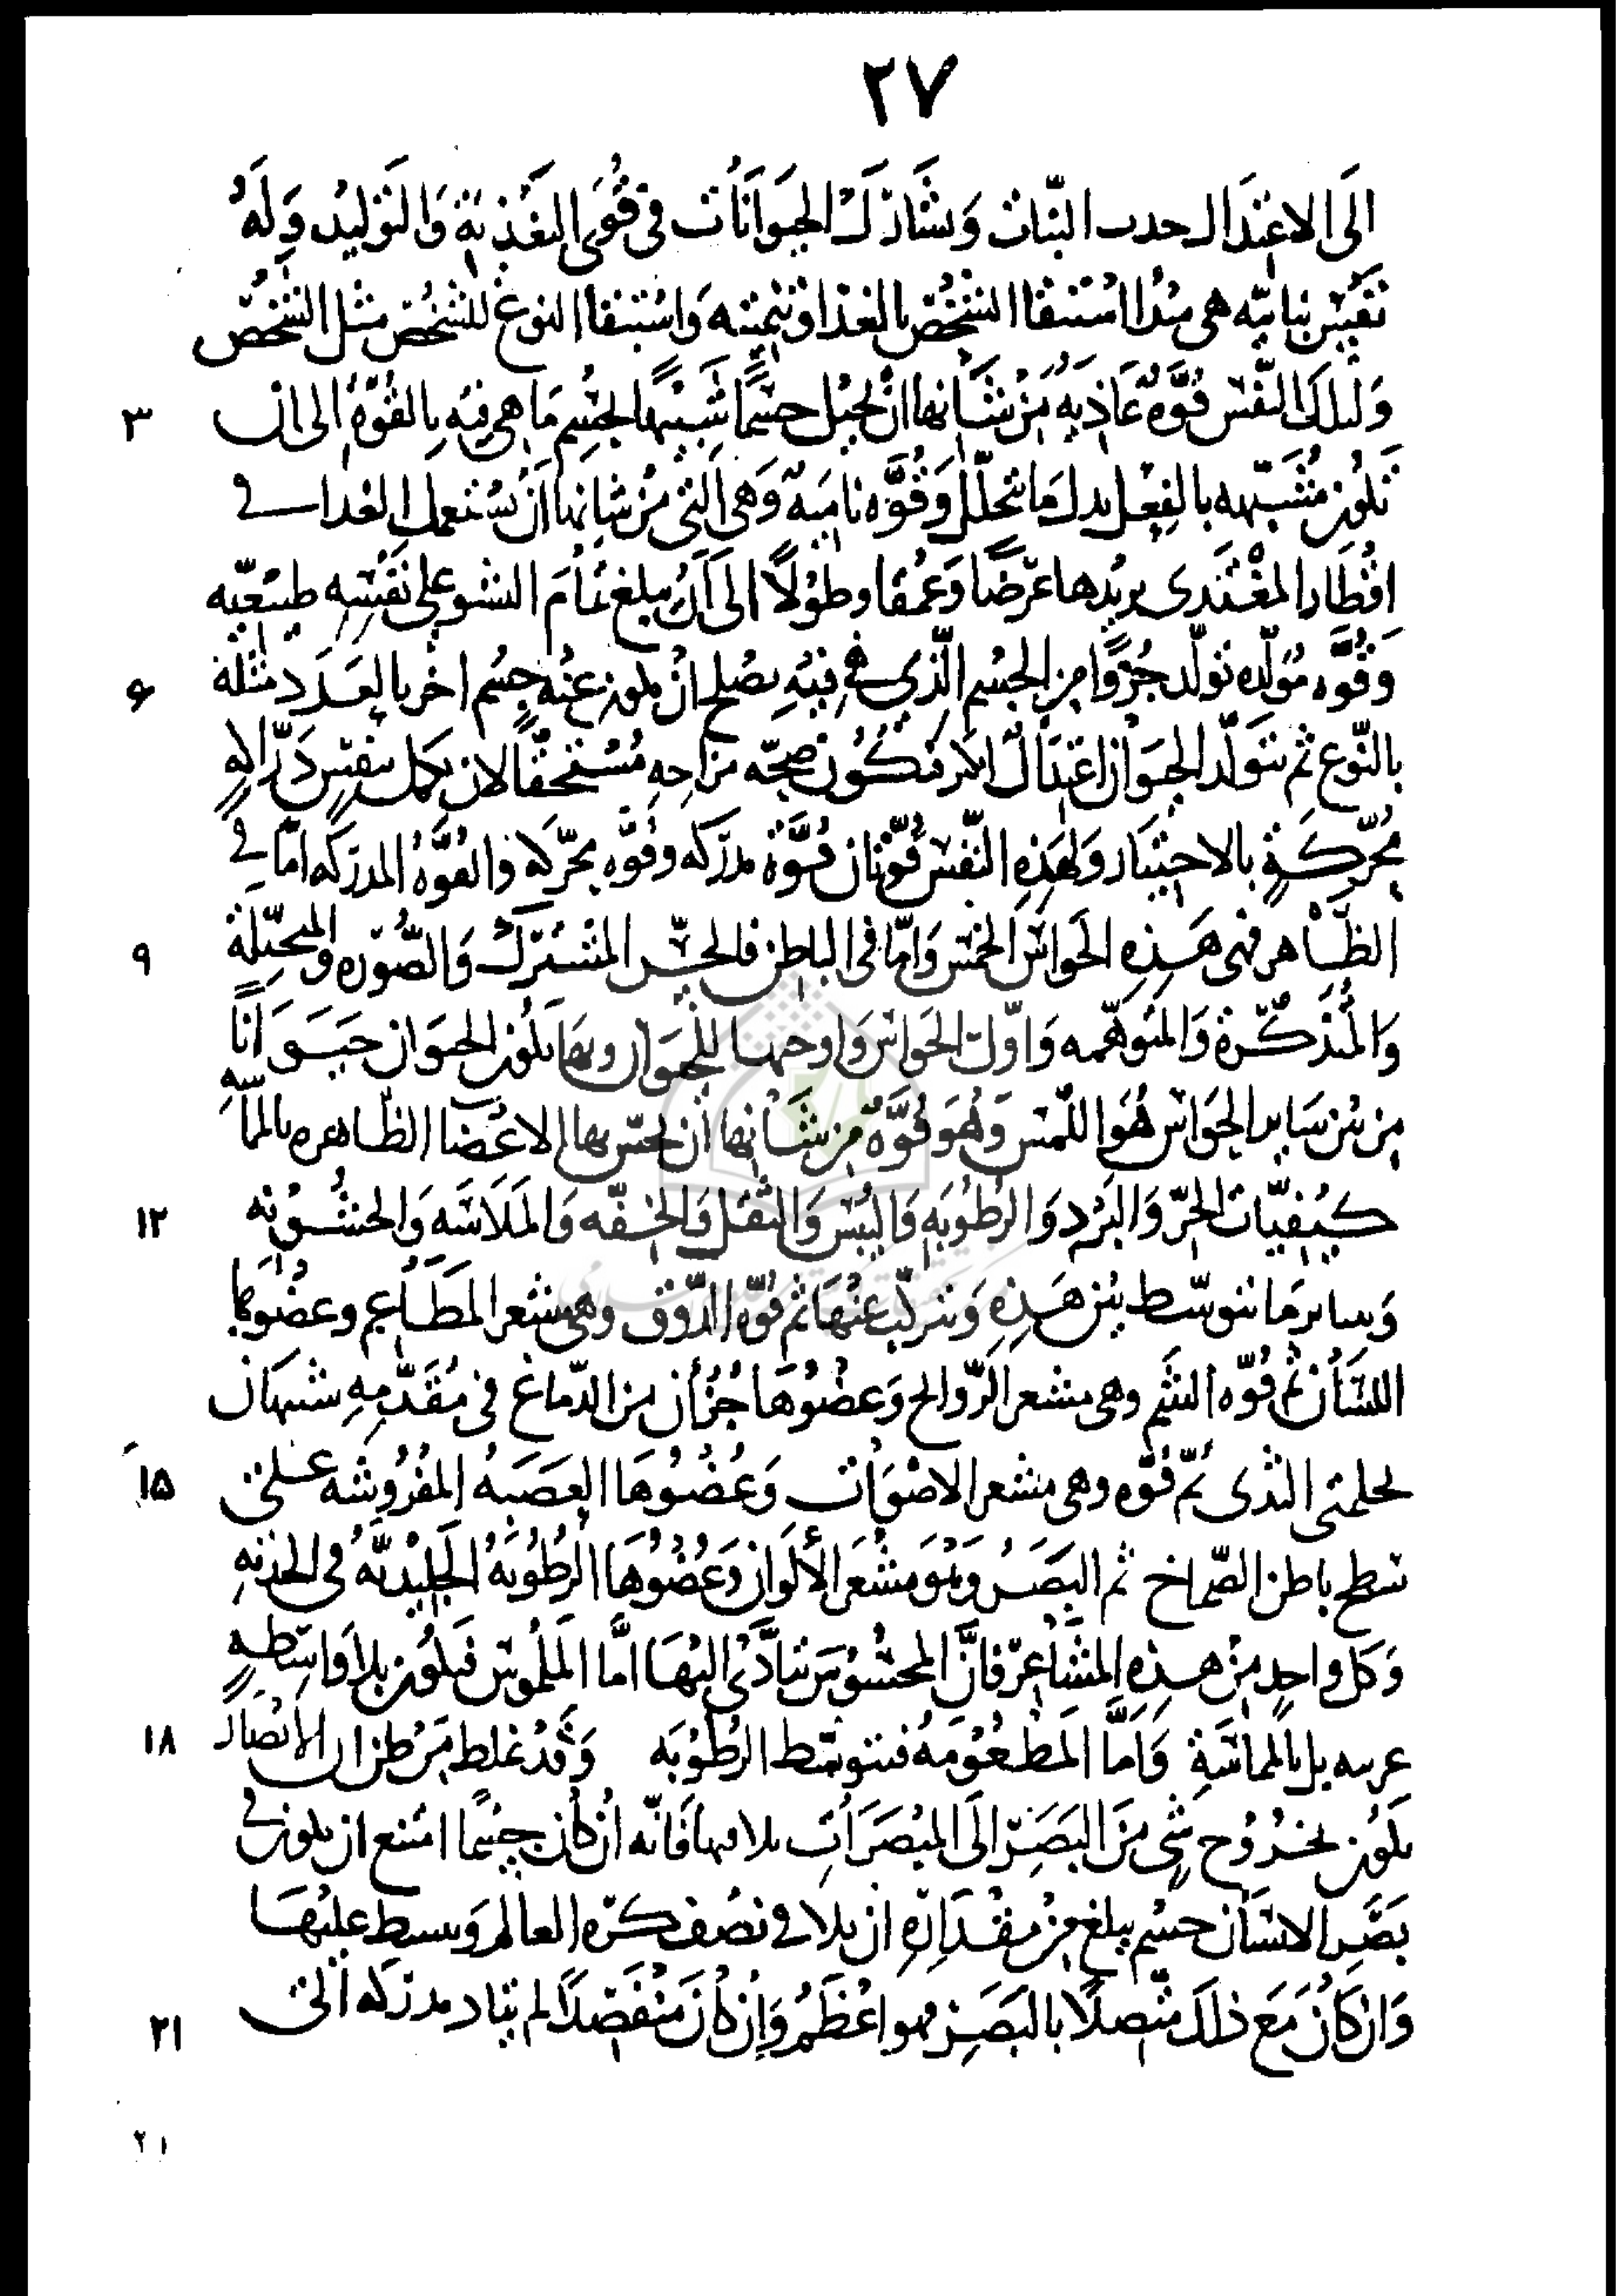 ٢٧
الى الاعتدال حدث النبات وتشارك الحيوانات في قوى التغذية والتوليد وله
نفس نباتيه هي مبدا استبقا الشخص بالغذا وتنميته واستبقا النوع للشخص مثل الشخص
ولتلك النفس قوّة غاذيه من شانها ان تحيل جسمًا شبيها بجسم ما هي فيه بالقوّة الى ان
٣
تكون مشبّهه بالفعل بدل ما يتحلّل وقوّه ناميه وهي التي من شانها ان تستعمل الغدا في
اقطار المغتدى يزيدها عرضًا وعمقا وطولًا الى ان يبلغ تمام النشو على نفسه طبيعيّه
وقوّه مولّده تولّد جزوًا من الجسم الّذي في فيه يصلح ان يكون عنه جسم اخر بالعدد مثله
۶
بالنّوع ثم يتولّد الحيوان اعتدال اكثر فتكون صحّه مزاجه مستحقًّا لان يكمل بنفس درّاكه
محرّكةٍ بالاختيار ولهذه النّفس قوّتان قوّة مدركه وقوّه محرّكه والقوّة المدركه امّا في
الظّاهر فهي هذه الحواسّ الخمس وامّا في الباطن فالحسّ المشترك والصّوره والمتخيّلة
٩
والمتذكّرة والمتوهّمه واوّل الحواس واوجبها للحيوان وبها يكون الحيوان حيوانًا
من بين ساير الحواس هو اللّمس وهو قوّة من شانها ان تحسّ بها الاعضا الظّاهره بالمماسّه
كيفيّات الحرّ والبرد والرطوبه واليبس والثّقل والخفّه والملاسه والخشونه
١٢
وساير ما يتوسّط بين هذه ويتركّب عنها ثم قوّه الذّوق وهي مشعر المطاعم وعضوها
اللسان ثم قوّه الشم وهي مشعر الرّوايح وعضوها جزآن من الدّماغ في مقدّمه شبيهان
بحلمتي الثدى ثمّ قوّه وهي مشعر الاصوات وعضوها العصبه المفروشه على
١۵
سطح باطن الصّماخ ثم البصر وهو مشعر الألوان وعضوها الرطوبه الجليديّه في الحدقه
وكل واحدٍ من هذه المشاعر فانّ المحسوس يتأدّى اليها امّا الملموس فيكون بلا واسطهٍ
غريبه بل بالمماسّة وامّا المطعومه فبتوسّط الرطوبه وقد غلط من ظن ان الابصار
١٨
يكون بخروج شي من البصر الى المبصرات يلاقيها فانّه ان كان جسمًا امتنع ان يكون في
بصر الانسان جسم يبلغ من مقداره ان يلاقي نصف كرّه العالم وينبسط عليها
وان كان مع ذلك متّصلًا بالبصر فهو اعظم وان كان منفصلًا لم يتاد مدركه الى
٢١
٢١